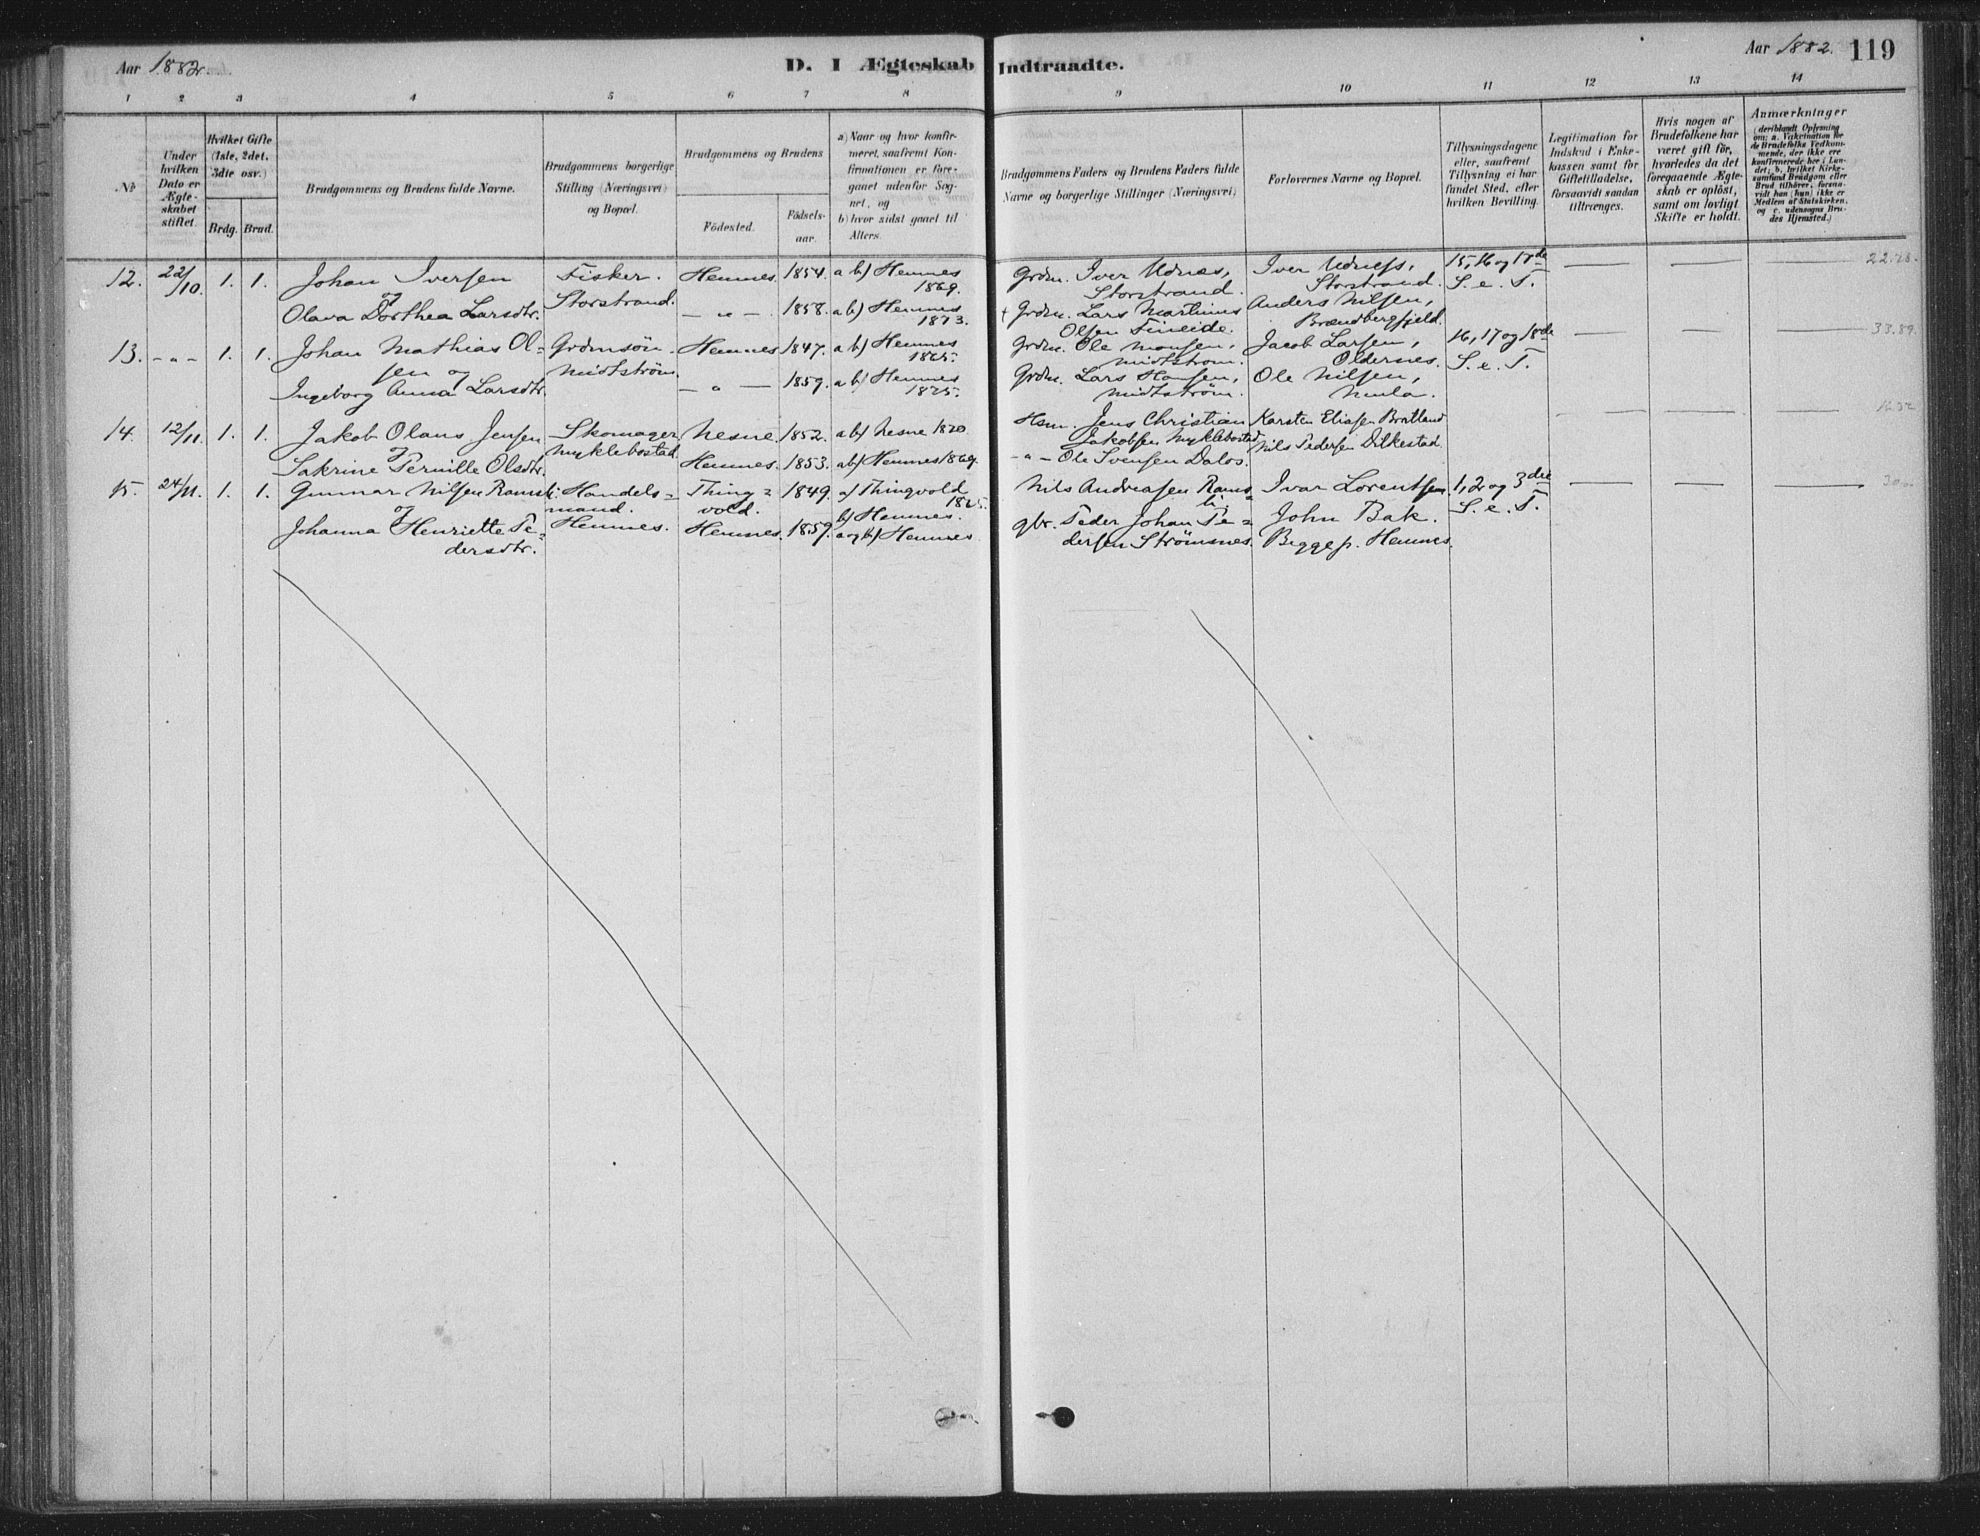 Aar 1882.
D. I Ægteskab Indtraadte.
Aar 1882. 119
1 2 3 4 5 6 7 8 9 10 11 12 13 14
No.
Under hvilken Dato er Ægteskabet stiftet.
Hvilket Gifte (1ste, 2det, 3die osv.)
Brdg. Brud.
Brudgommens og Brudens fulde Navne.
Brudgommens borgerlige Stilling (Næringsvei) og Bopæl.
Brudgommens og Brudens
Födested.
Födselsaar.
a) Naar og hvor konfirmeret, saafremt Konfirmationen er foregaaet udenfor Sognet, og
b) hvor sidst gaaet til Alters.
Brudgommens Faders og Brudens Faders fulde Navne og borgerlige Stillinger (Næringsvei)
Forlovernes Navne og Bopæl.
Tillysningsdagene eller, saafremt Tillysning ei har fundet Sted, efter hvilken Bevilling.
Legitimation for Indskud i Enkekassen samt for Giftetilladelse, forsaavidt saadan tiltrænges.
Hvis nogen af Brudefolkene har været gift för, hvorledes da det foregaaende Ægteskab er oplöst, samt om lovligt Skifte er holdt.
Anmærkninger
(deriblandt Oplysning om: a. Vakcination for de Brudefolks Vedkommende, der ikke ere konfirmerede her i Landet; b. hvilket Kirkesamfund Brudgom eller Brud tilhörer, forsaavidt han (hun) ikke er Medlem af Statskirken, og c. udensogns Brudes Hjemsted.)
12. 22/10. 1. 1. Johan Iversen Fisker. Hemnes. 1854. a b) Hemnes 1869. Grdm. Iver Udnæs, Storstrand. Iver Udness, Storstrand. 15, 16 og 17de S. e. T. 22.78.
og
Olava Dorthea Larsdtr. Storstrand. — " — 1858. a b) Hemnes 1873. + Grdm. Lars Martinus Olsen Fineide. Anders Nilsen, Brændbergfjeld.
13. — " — 1. 1. Johan Mathias Ol=
sen og Grdmsön Midtström. Hemnes 1847. a b) Hemnes 1865. Grdm. Ole Monsen, Midtström. Jacob Larsen, Oldernes. 16, 17 og 18de S. e. T. 33.89.
Ingeborg Anna Larsdtr. — " — 1859. a b) Hemnes 1875. Grdm. Lars Hansen, Midtström. Ole Nilsen,
14. 12/11. 1. 1. Jakob Olaus Jensen Skomager Nesne 1852. a b) Nesne 1870 Hsm. Jens Christian Jakobsen Myklebostad Karsten Eliasen Bratland
og
Sakrine Pernille Olsdtr. Myklebostad. Hemnes. 1853. a b) Hemnes 1869. — " — Ole Svensen Dalos. Nils Pedersen Dilkestad
15. 24/11. 1. 1. Gunnar Nilsen Ramsli Handels=
mand. Hemnes. Thing=
vold. 1849. a) Thingvold 1865. b) Hemnes. Nils Andreasen Rams=
li. Ivar Lorentsen 1, 2 og 3die S. e. T.
og
Johanna Henriette Pe=
dersdtr. Hemnes. 1859. a og b) Hemnes gbr. Peder Johan Pe=
dersen Strömsnes. John Bak. Beggep. Hemnes.